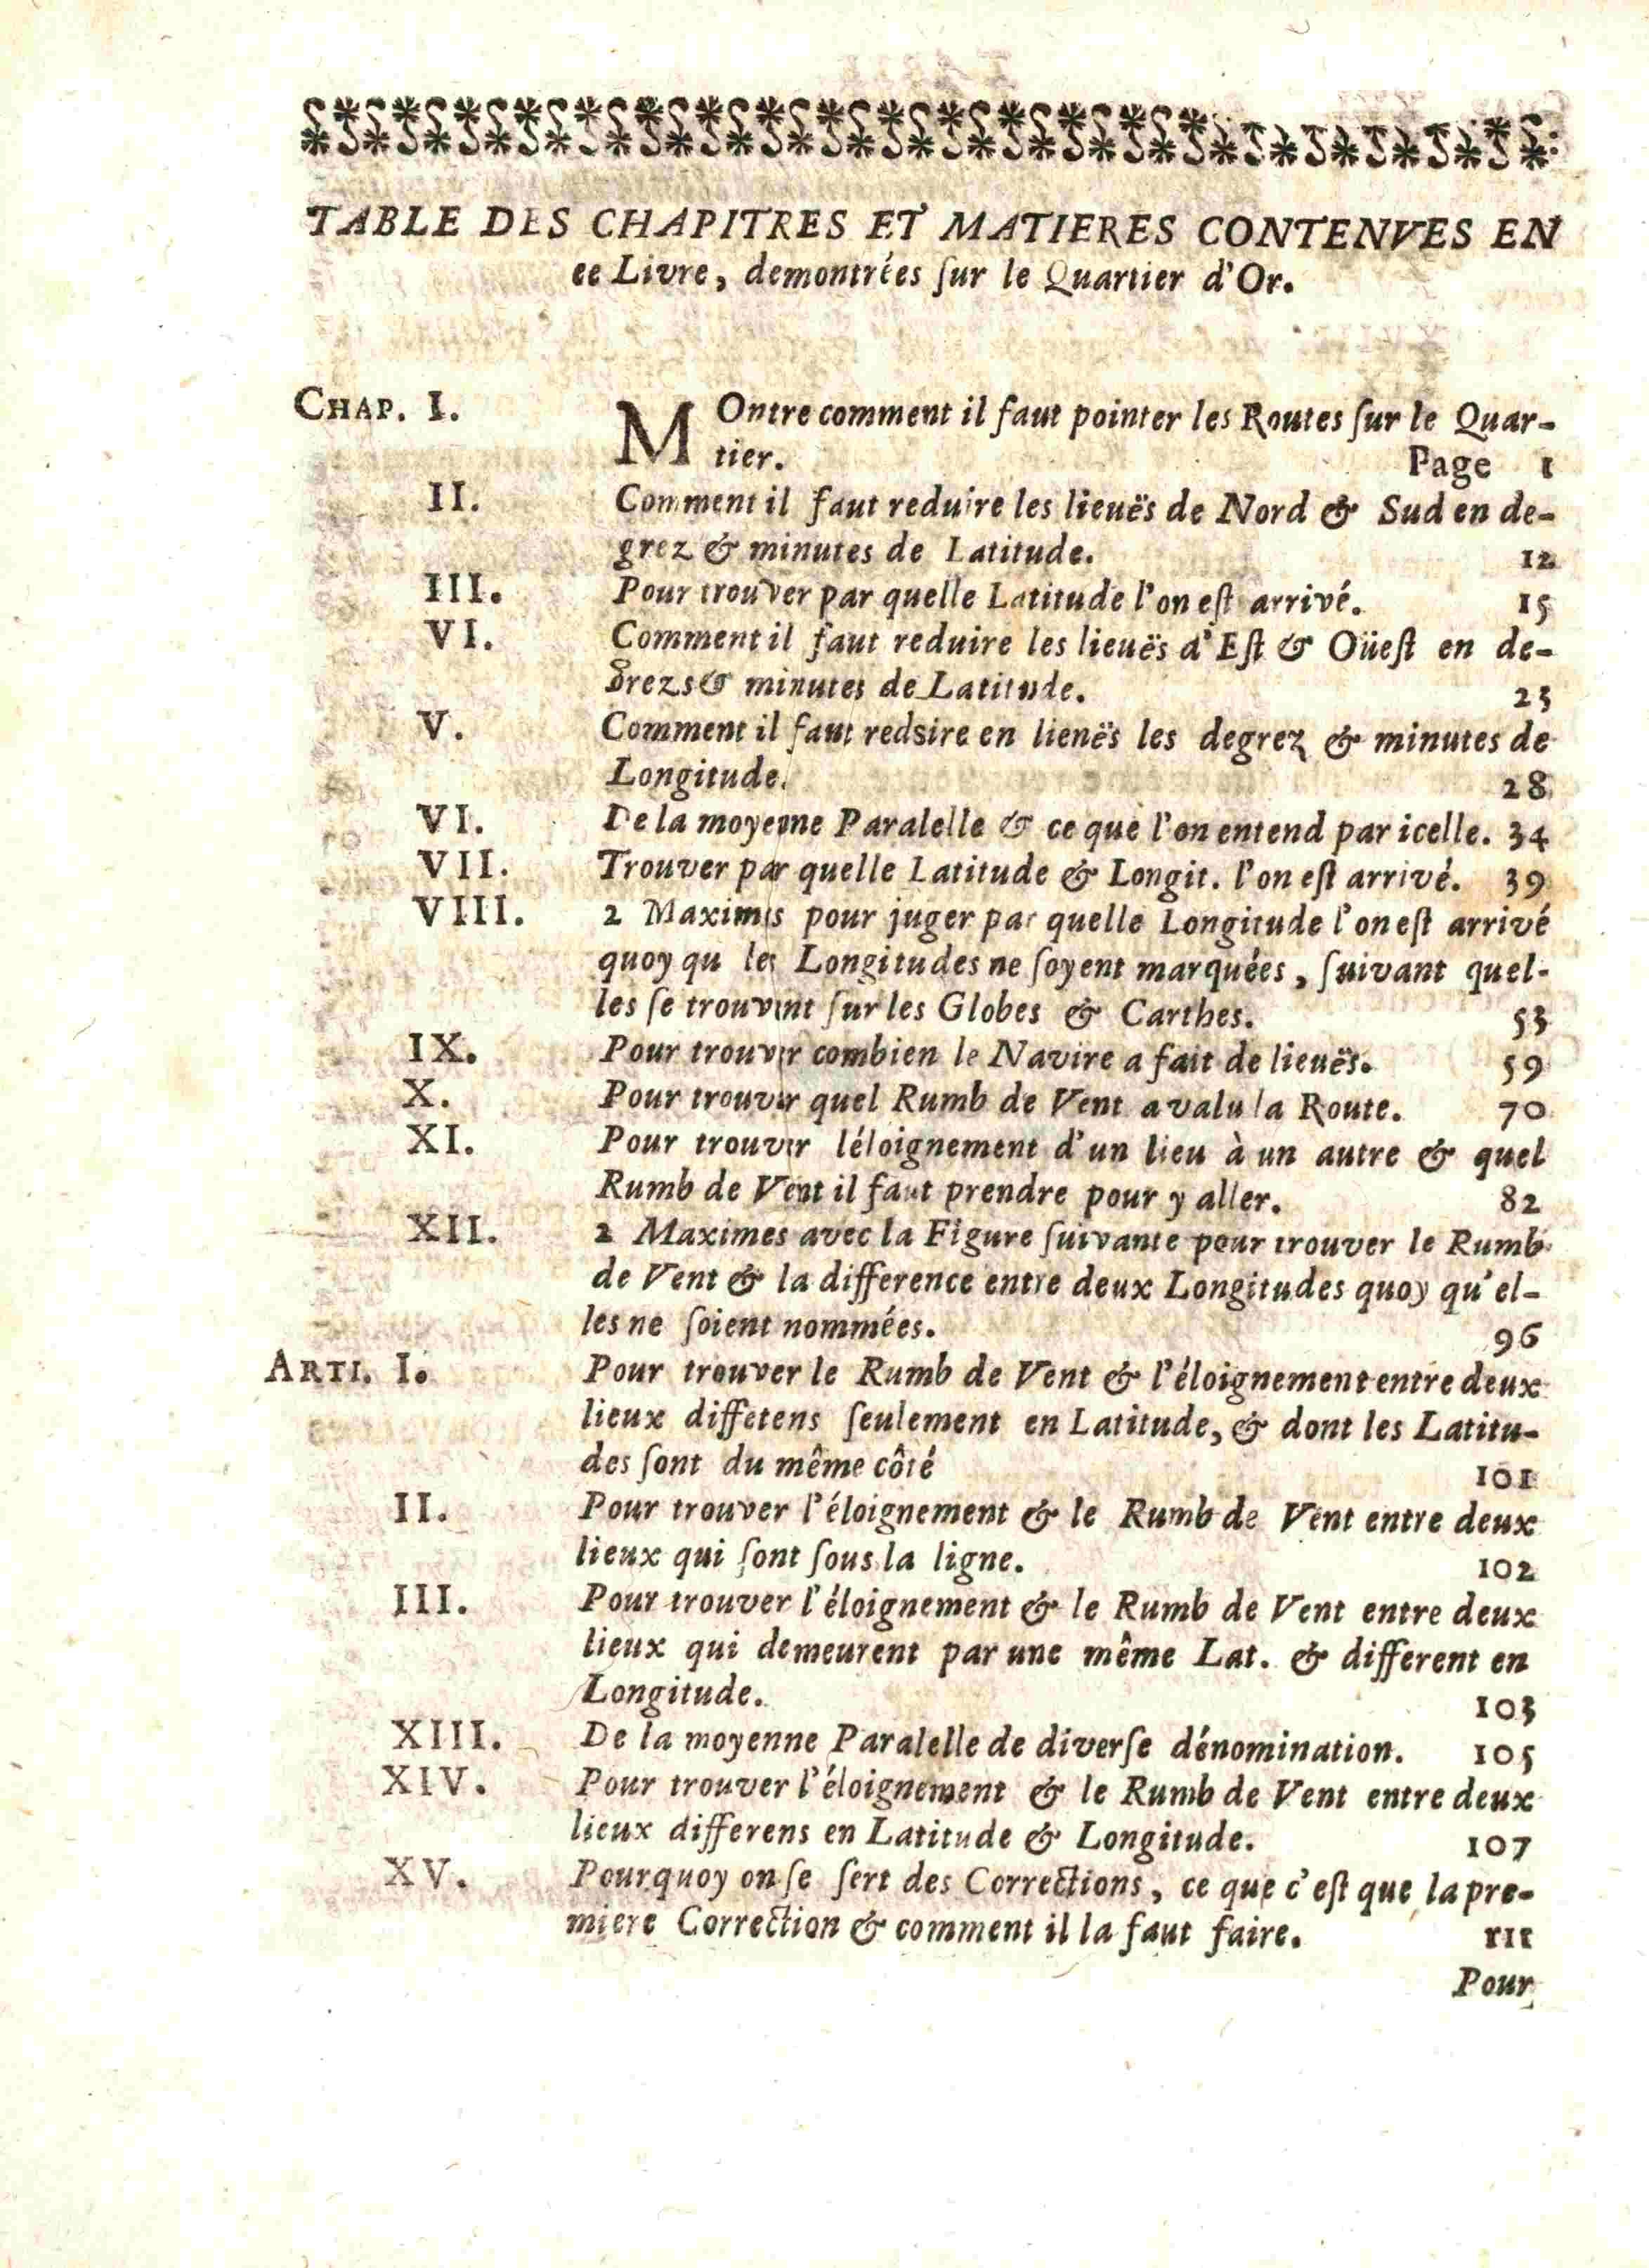 TABLE DES CHAPITRES ET MATIERES CONTENVES EN
ee Livre, demontrées ſur le Quartier d'Or.
CHAP. I. MOntre comment il faut pointer les Routes ſur le Quar-
tier. Page 1
II. Comment il faut reduire les lieuës de Nord & Sud en de-
grez & minutes de Latitude. 12
III. Pour trouver par quelle Latitude l'on eſt arrivé. 15
VI. Comment il faut reduire les lieuës d'Eſt & Oüeſt en de-
grezs & minutes de Latitude. 23
V. Comment il faut redsire en lienës les degrez & minutes de
Longitude. 28
VI. De la moyenne Paralelle & ce que l'on entend par icelle. 34
VII. Trouver par quelle Latitude & Longit. l'on eſt arrivé. 39
VIII. 2 Maximes pour juger par quelle Longitude l'on eſt arrivé
quoy qu les Longitudes ne ſoyent marquées, ſuivant quel-
les ſe trouvent ſur les Globes & Carthes. 53
IX. Pour trouver combien le Navire a fait de lieuës. 59
X. Pour trouver quel Rumb de Vent a valu la Route. 70
XI. Pour trouver léloignement d'un lieu à un autre & quel
Rumb de Vent il faut prendre pour y aller. 82
XII. 2 Maximes avec la Figure ſuivante pour trouver le Rumb
de Vent & la difference entre deux Longitudes quoy qu'el-
les ne ſoient nommées. 96
ARTI. I. Pour trouver le Rumb de Vent & l'éloignement entre deux
lieux diffetens ſeulement en Latitude, & dont les Latitu-
des ſont du même côté 101
II. Pour trouver l'éloignement & le Rumb de Vent entre deux
lieux qui ſont ſous la ligne. 102
III. Pour trouver l'éloignement & le Rumb de Vent entre deux
lieux qui demeurent par une même Lat. & different en
Longitude. 103
XIII. De la moyenne Paralelle de diverſe dénomination. 105
XIV. Pour trouver l'éloignement & le Rumb de Vent entre deux
lieux differens en Latitude & Longitude. 107
XV. Pourquoy on ſe ſert des Corrections, ce que c'eſt que la pre-
miere Correction & comment il la faut faire. 111
Pour